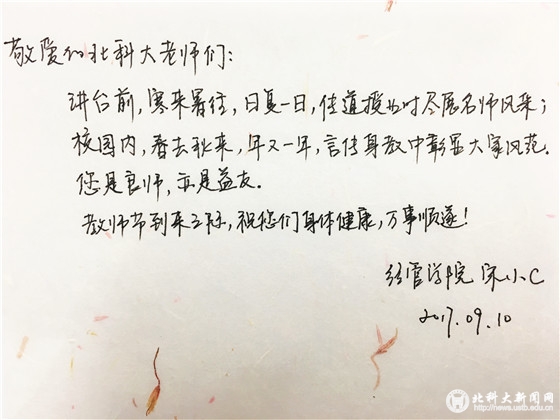 敬爱的北科大老师们：
讲台前，寒来暑往，日复一日，传道授业时尽展名师风采；
校园内，春去秋来，年又一年，言传身教中彰显大家风范。
您是良师，亦是益友。
教师节到来之际，祝您们身体健康，万事顺遂！
经管学院 宋小C
2017.09.10
北科大新闻网
http://news.ustb.edu.cn